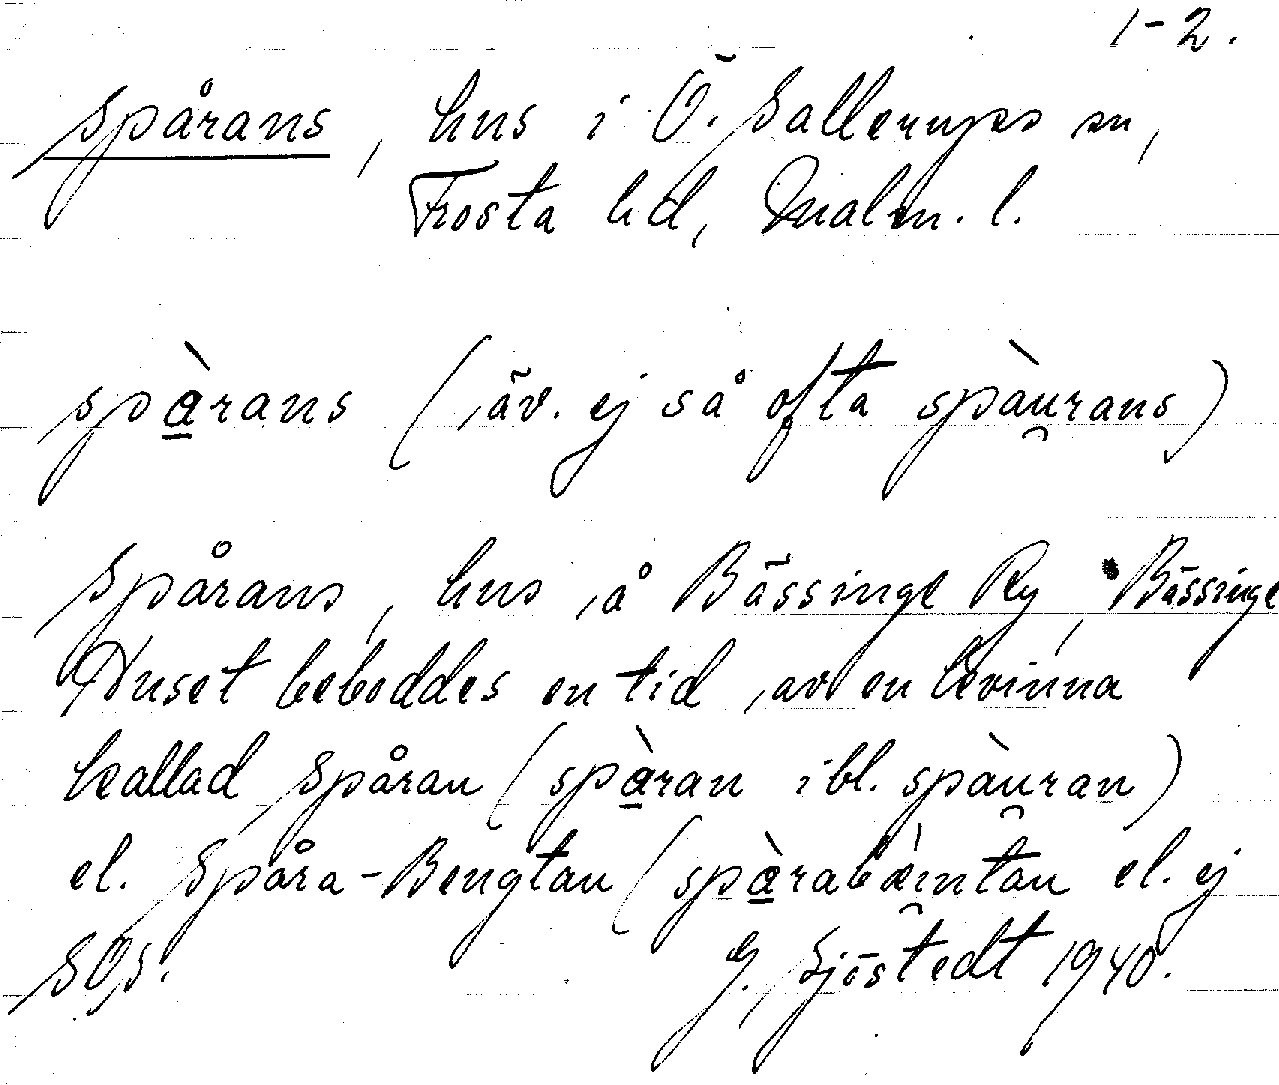 1-2.
Spårans, hus i Ö. Sallerups sn,
Frosta hd, Malm. l.
spàrans (äv. ej så ofta spàu̯rans)
Spårans, hus å Bässinge Ry, Bässinge
Huset beboddes en tid av en kvinna
kallad Spåran (spàran ibl. spàu̯ran)
el. Spåra-Bengtan (spàrabæi̯ntan el. ej
SOJ. G. Sjöstedt 1940.